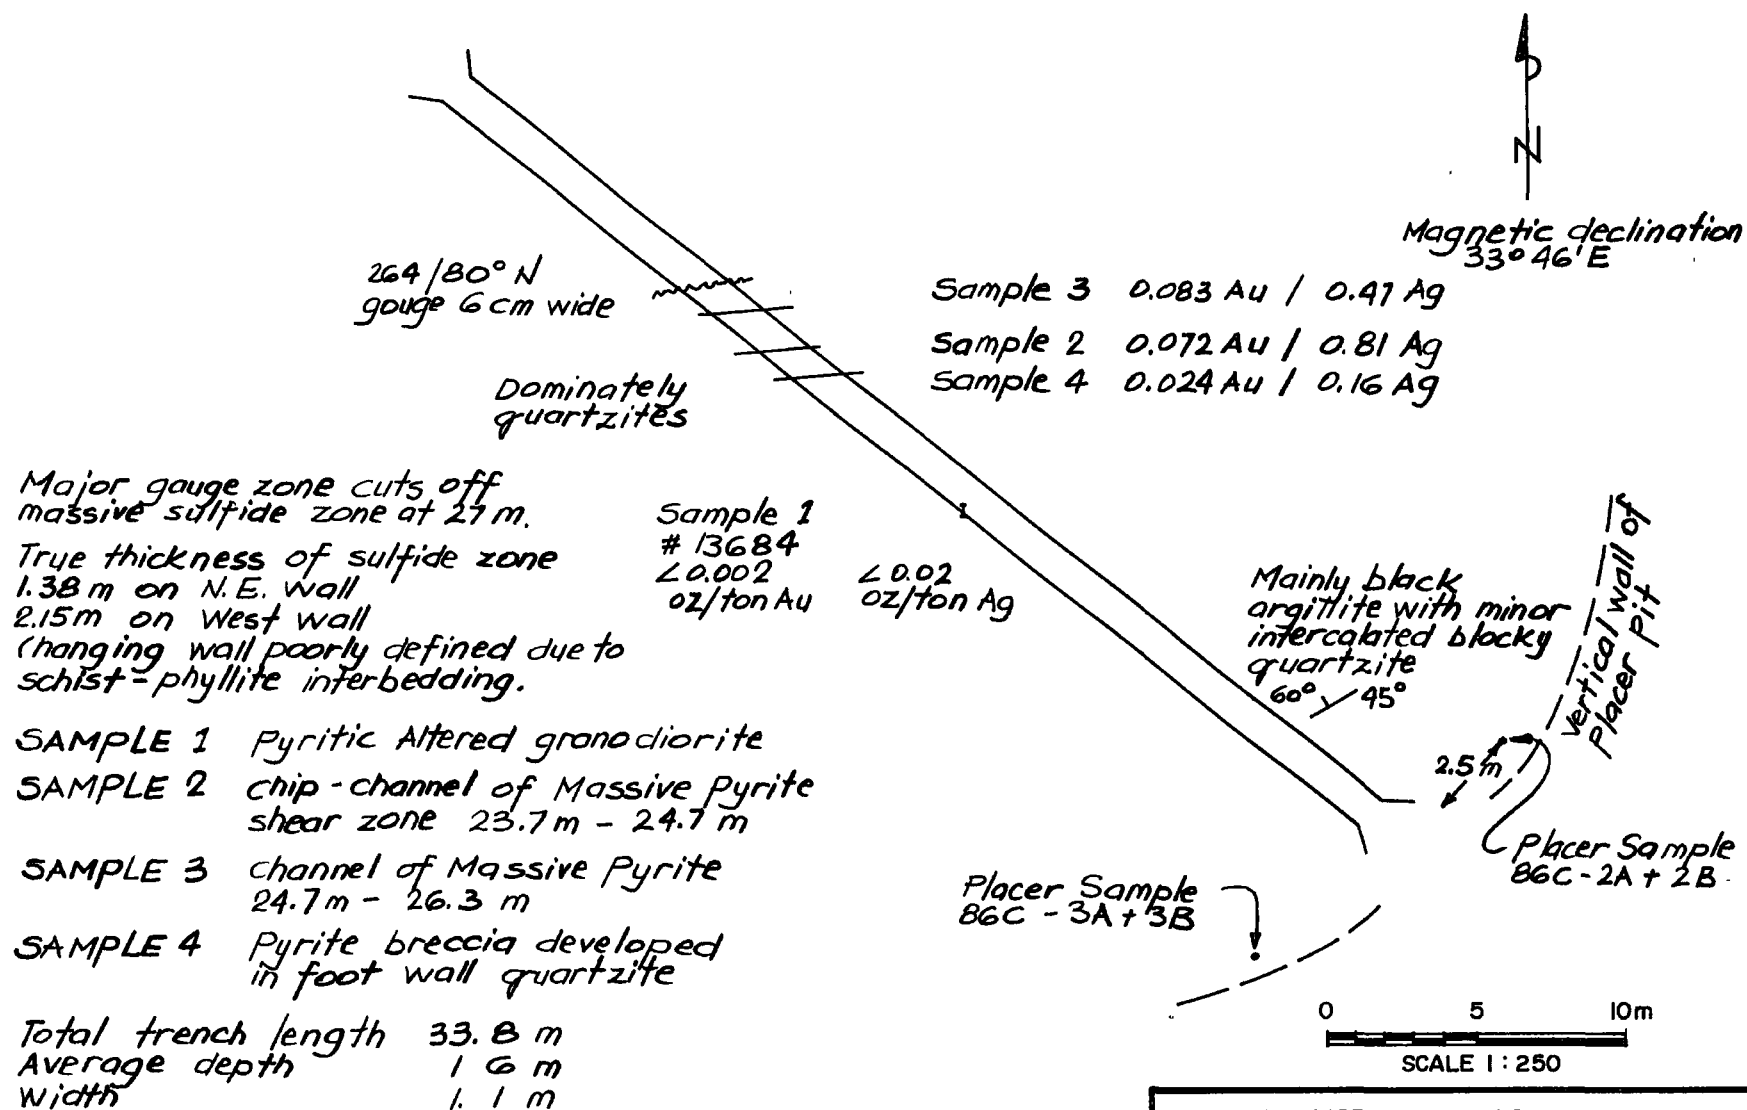 N
Magnetic declination
33° 46' E
264/80° N
gouge 6 cm wide
Sample 3 0.083 Au / 0.47 Ag
Sample 2 0.072 Au / 0.81 Ag
Sample 4 0.024 Au / 0.16 Ag
Dominately
quartzites
Major gauge zone cuts off
massive sulfide zone at 27 m.
True thickness of sulfide zone
1.38 m on N.E. wall
2.15m on West wall
(hanging wall poorly defined due to
schist-phyllite interbedding.
Sample 1
# 13684
<0.002 <0.02
oz/ton Au oz/ton Ag
Mainly black
argillite with minor
intercalated blocky
quartzite
60° 45°
Vertical wall of
Placer pit
2.5 m
SAMPLE 1 Pyritic Altered granodiorite
SAMPLE 2 chip-channel of Massive Pyrite
shear zone 23.7m - 24.7 m
SAMPLE 3 channel of Massive Pyrite
24.7m - 26.3 m
SAMPLE 4 Pyrite breccia developed
in foot wall quartzite
Placer Sample
86C-2A + 2B
Placer Sample
86C - 3A + 3B
Total trench length 33.8 m
Average depth 1 6 m
Width 1.1 m
0 5 10m
SCALE 1:250